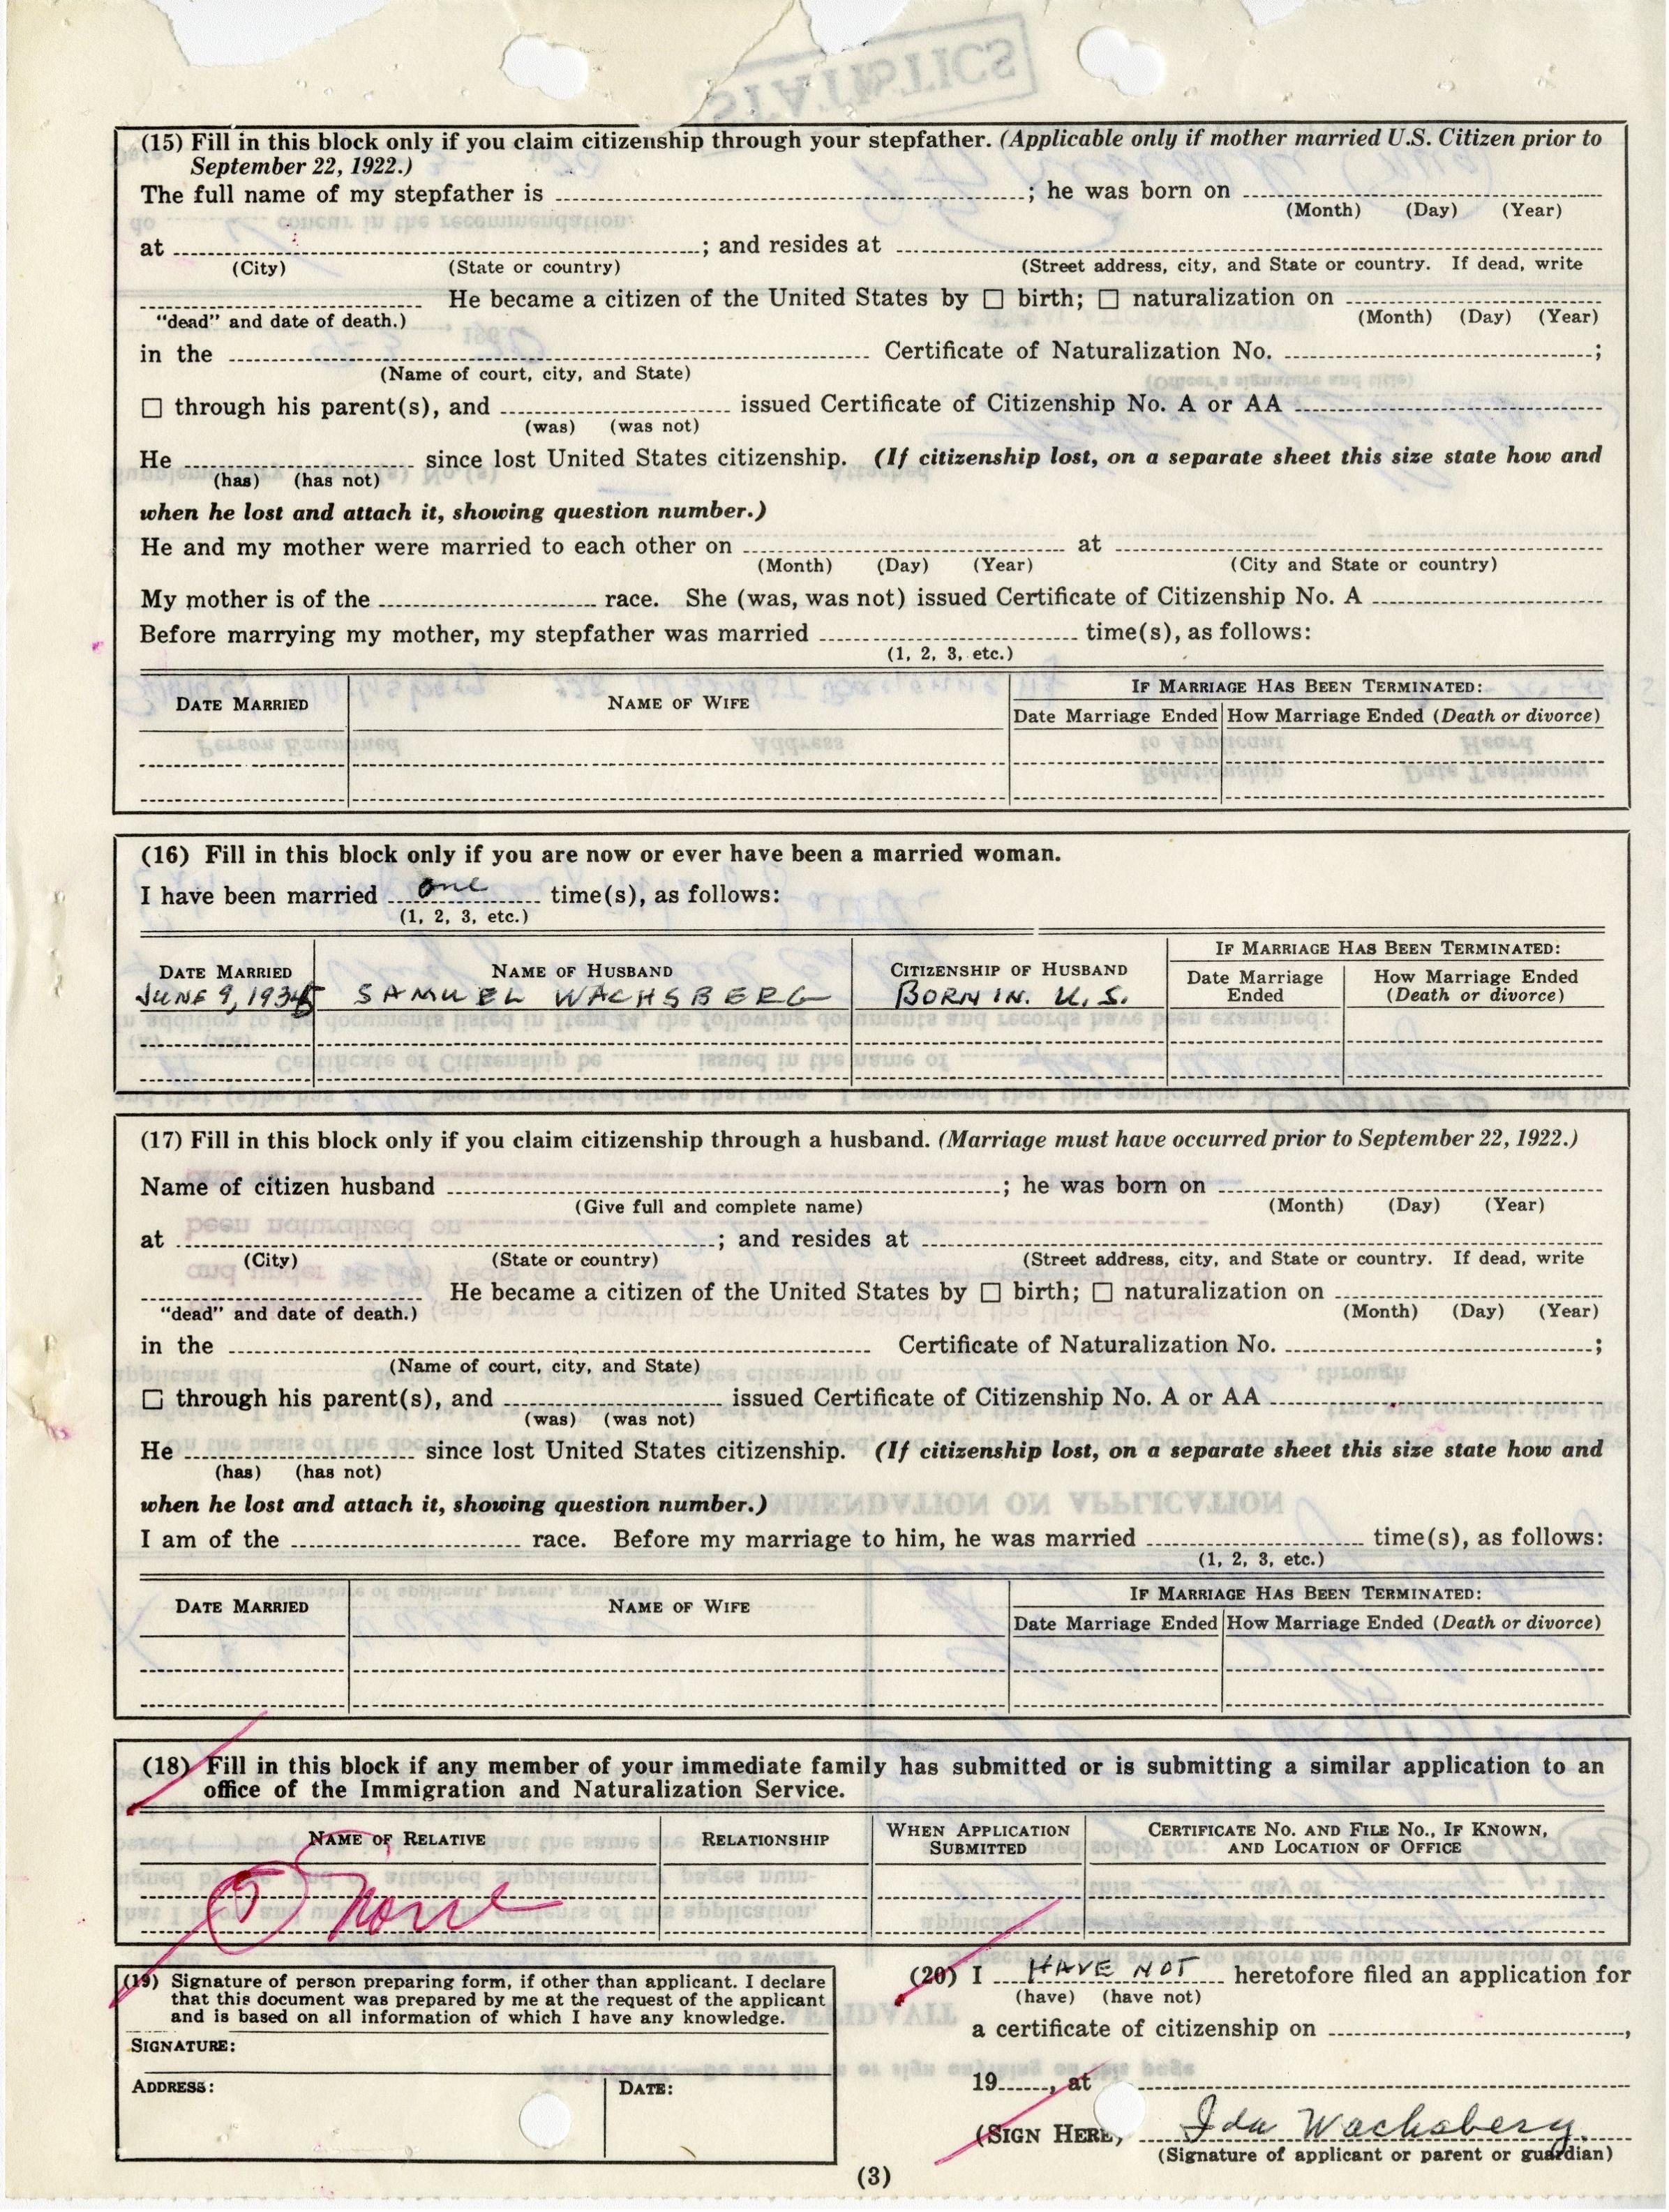 STATISTICS
(15) Fill in this block only if you claim citizenship through your stepfather. (Applicable only if mother married U.S. Citizen prior to
September 22, 1922.)
The full name of my stepfather is ; he was born on
(Month) (Day) (Year)
at ; and resides at
(City) (State or country) (Street address, city, and State or country. If dead, write
He became a citizen of the United States by ☐ birth; ☐ naturalization on
"dead" and date of death.) (Month) (Day) (Year)
in the Certificate of Naturalization No. ;
(Name of court, city, and State)
☐ through his parent(s), and issued Certificate of Citizenship No. A or AA
(was) (was not)
He since lost United States citizenship. (If citizenship lost, on a separate sheet this size state how and
(has) (has not)
when he lost and attach it, showing question number.)
He and my mother were married to each other on at
(Month) (Day) (Year) (City and State or country)
My mother is of the race. She (was, was not) issued Certificate of Citizenship No. A
Before marrying my mother, my stepfather was married time(s), as follows:
(1, 2, 3, etc.)
DATE MARRIED NAME OF WIFE IF MARRIAGE HAS BEEN TERMINATED:
Date Marriage Ended How Marriage Ended (Death or divorce)
(16) Fill in this block only if you are now or ever have been a married woman.
I have been married one time(s), as follows:
(1, 2, 3, etc.)
DATE MARRIED NAME OF HUSBAND CITIZENSHIP OF HUSBAND IF MARRIAGE HAS BEEN TERMINATED:
Date Marriage Ended How Marriage Ended (Death or divorce)
JUNE 9, 1935 SAMUEL WACHSBERG BORN IN. U.S.
(17) Fill in this block only if you claim citizenship through a husband. (Marriage must have occurred prior to September 22, 1922.)
Name of citizen husband ; he was born on
(Give full and complete name) (Month) (Day) (Year)
at ; and resides at
(City) (State or country) (Street address, city, and State or country. If dead, write
He became a citizen of the United States by ☐ birth; ☐ naturalization on
"dead" and date of death.) (Month) (Day) (Year)
in the Certificate of Naturalization No. ;
(Name of court, city, and State)
☐ through his parent(s), and issued Certificate of Citizenship No. A or AA
(was) (was not)
He since lost United States citizenship. (If citizenship lost, on a separate sheet this size state how and
(has) (has not)
when he lost and attach it, showing question number.)
I am of the race. Before my marriage to him, he was married time(s), as follows:
(1, 2, 3, etc.)
DATE MARRIED NAME OF WIFE IF MARRIAGE HAS BEEN TERMINATED:
Date Marriage Ended How Marriage Ended (Death or divorce)
(18) Fill in this block if any member of your immediate family has submitted or is submitting a similar application to an
office of the Immigration and Naturalization Service.
NAME OF RELATIVE RELATIONSHIP WHEN APPLICATION SUBMITTED CERTIFICATE NO. AND FILE NO., IF KNOWN, AND LOCATION OF OFFICE
None
(19) Signature of person preparing form, if other than applicant. I declare
that this document was prepared by me at the request of the applicant
and is based on all information of which I have any knowledge.
SIGNATURE:
ADDRESS: DATE:
(20) I HAVE NOT heretofore filed an application for
(have) (have not)
a certificate of citizenship on ,
19 , at
(SIGN HERE) Ida Wachsberg.
(Signature of applicant or parent or guardian)
(3)